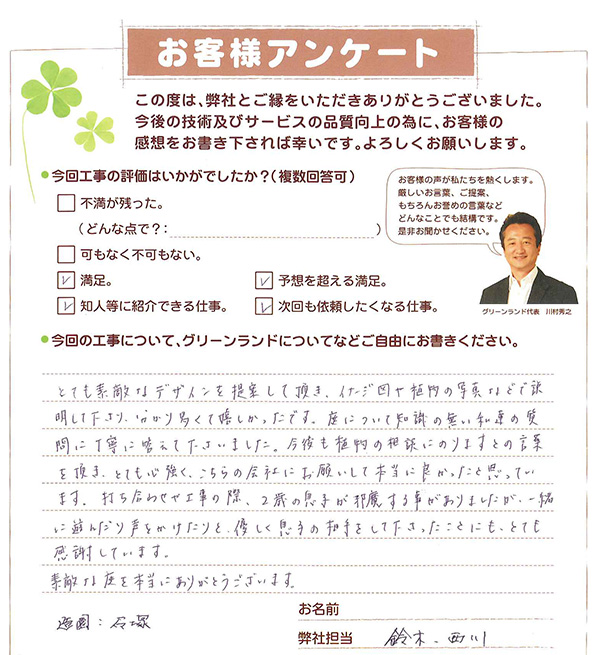 お客様アンケート
この度は、弊社とご縁をいただきありがとうございました。
今後の技術及びサービスの品質向上の為に、お客様の
感想をお書き下されば幸いです。よろしくお願いします。
●今回工事の評価はいかがでしたか?(複数回答可)
お客様の声が私たちを熱くします。
厳しいお言葉、ご提案、
もちろんお誉めの言葉など
どんなことでも結構です。
是非お聞かせください。
不満が残った。
(どんな点で?: )
可もなく不可もない。
満足。 予想を超える満足。
知人等に紹介できる仕事。 次回も依頼したくなる仕事。
グリーンランド代表 川村秀之
●今回の工事について、グリーンランドについてなどご自由にお書きください。
とても素敵なデザインを提案して頂き、イメージ図や植物の写真などで説
明して下さり、分かり易くて嬉しかったです。庭について知識の無い私達の質
問に丁寧に答えて下さいました。今後も植物の相談にのりますとの言葉
を頂き、とても心強く、こちらの会社にお願いして本当に良かったと思ってい
ます。打ち合わせや工事の際、2歳の息子が邪魔する事がありましたが、一緒
に遊んだり声をかけたりと、優しく息子の相手をして下さったことにも、とても
感謝しています。
素敵な庭を本当にありがとうございます。
お名前
造園:石塚
弊社担当 鈴木、西川